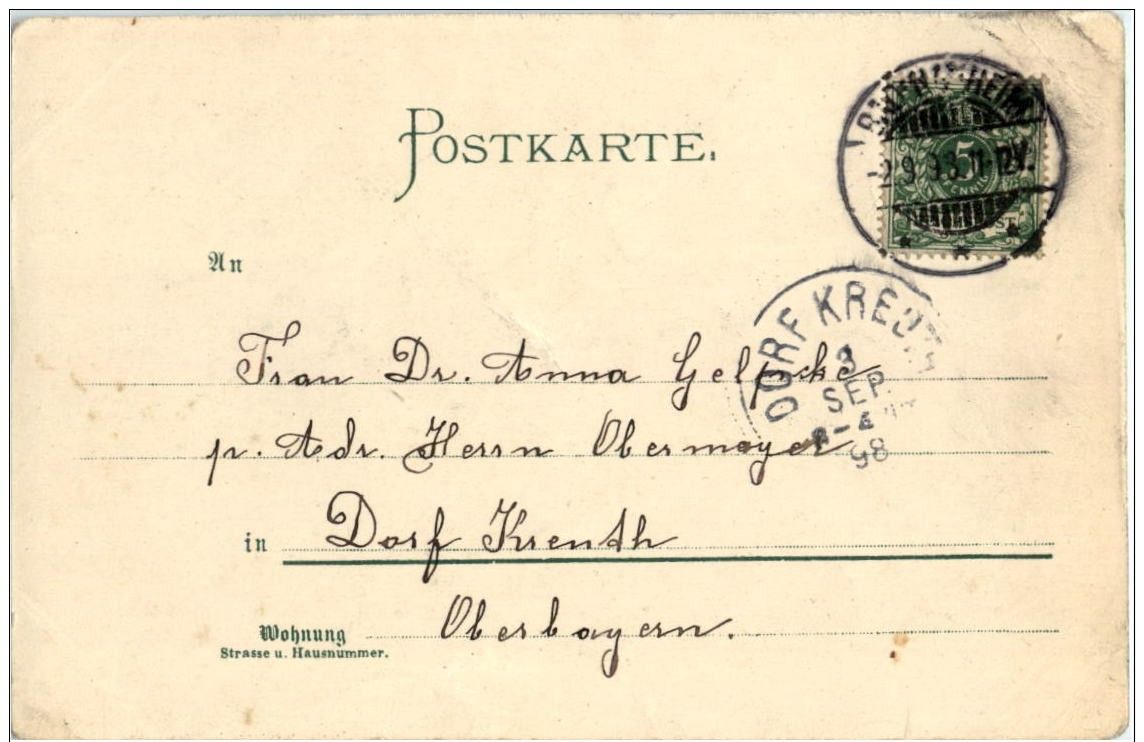 POSTKARTE.
-2.9.98.11-12V.
5
PFENNIG
An
DORF KREUTH
3
SEP
98
Frau Dr. Anna Gelpcke
pr. Adr. Herrn Obermayer
in Dorf Kreuth
Wohnung Oberbayern.
Strasse u. Hausnummer.